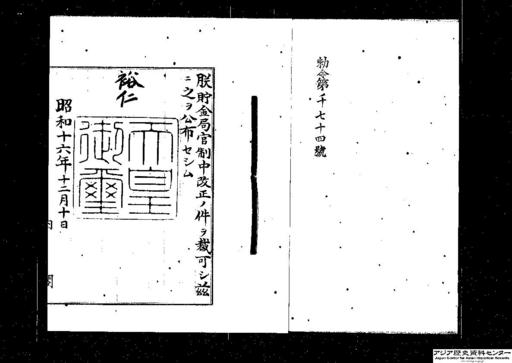 勅令第千七十四號
朕貯金局官制中改正ノ件ヲ裁可シ茲
ニ之ヲ公布セシム
裕仁
天皇御璽
昭和十六年十二月十日
内閣
アジア歴史資料センター
Japan Center for Asian Historical Records